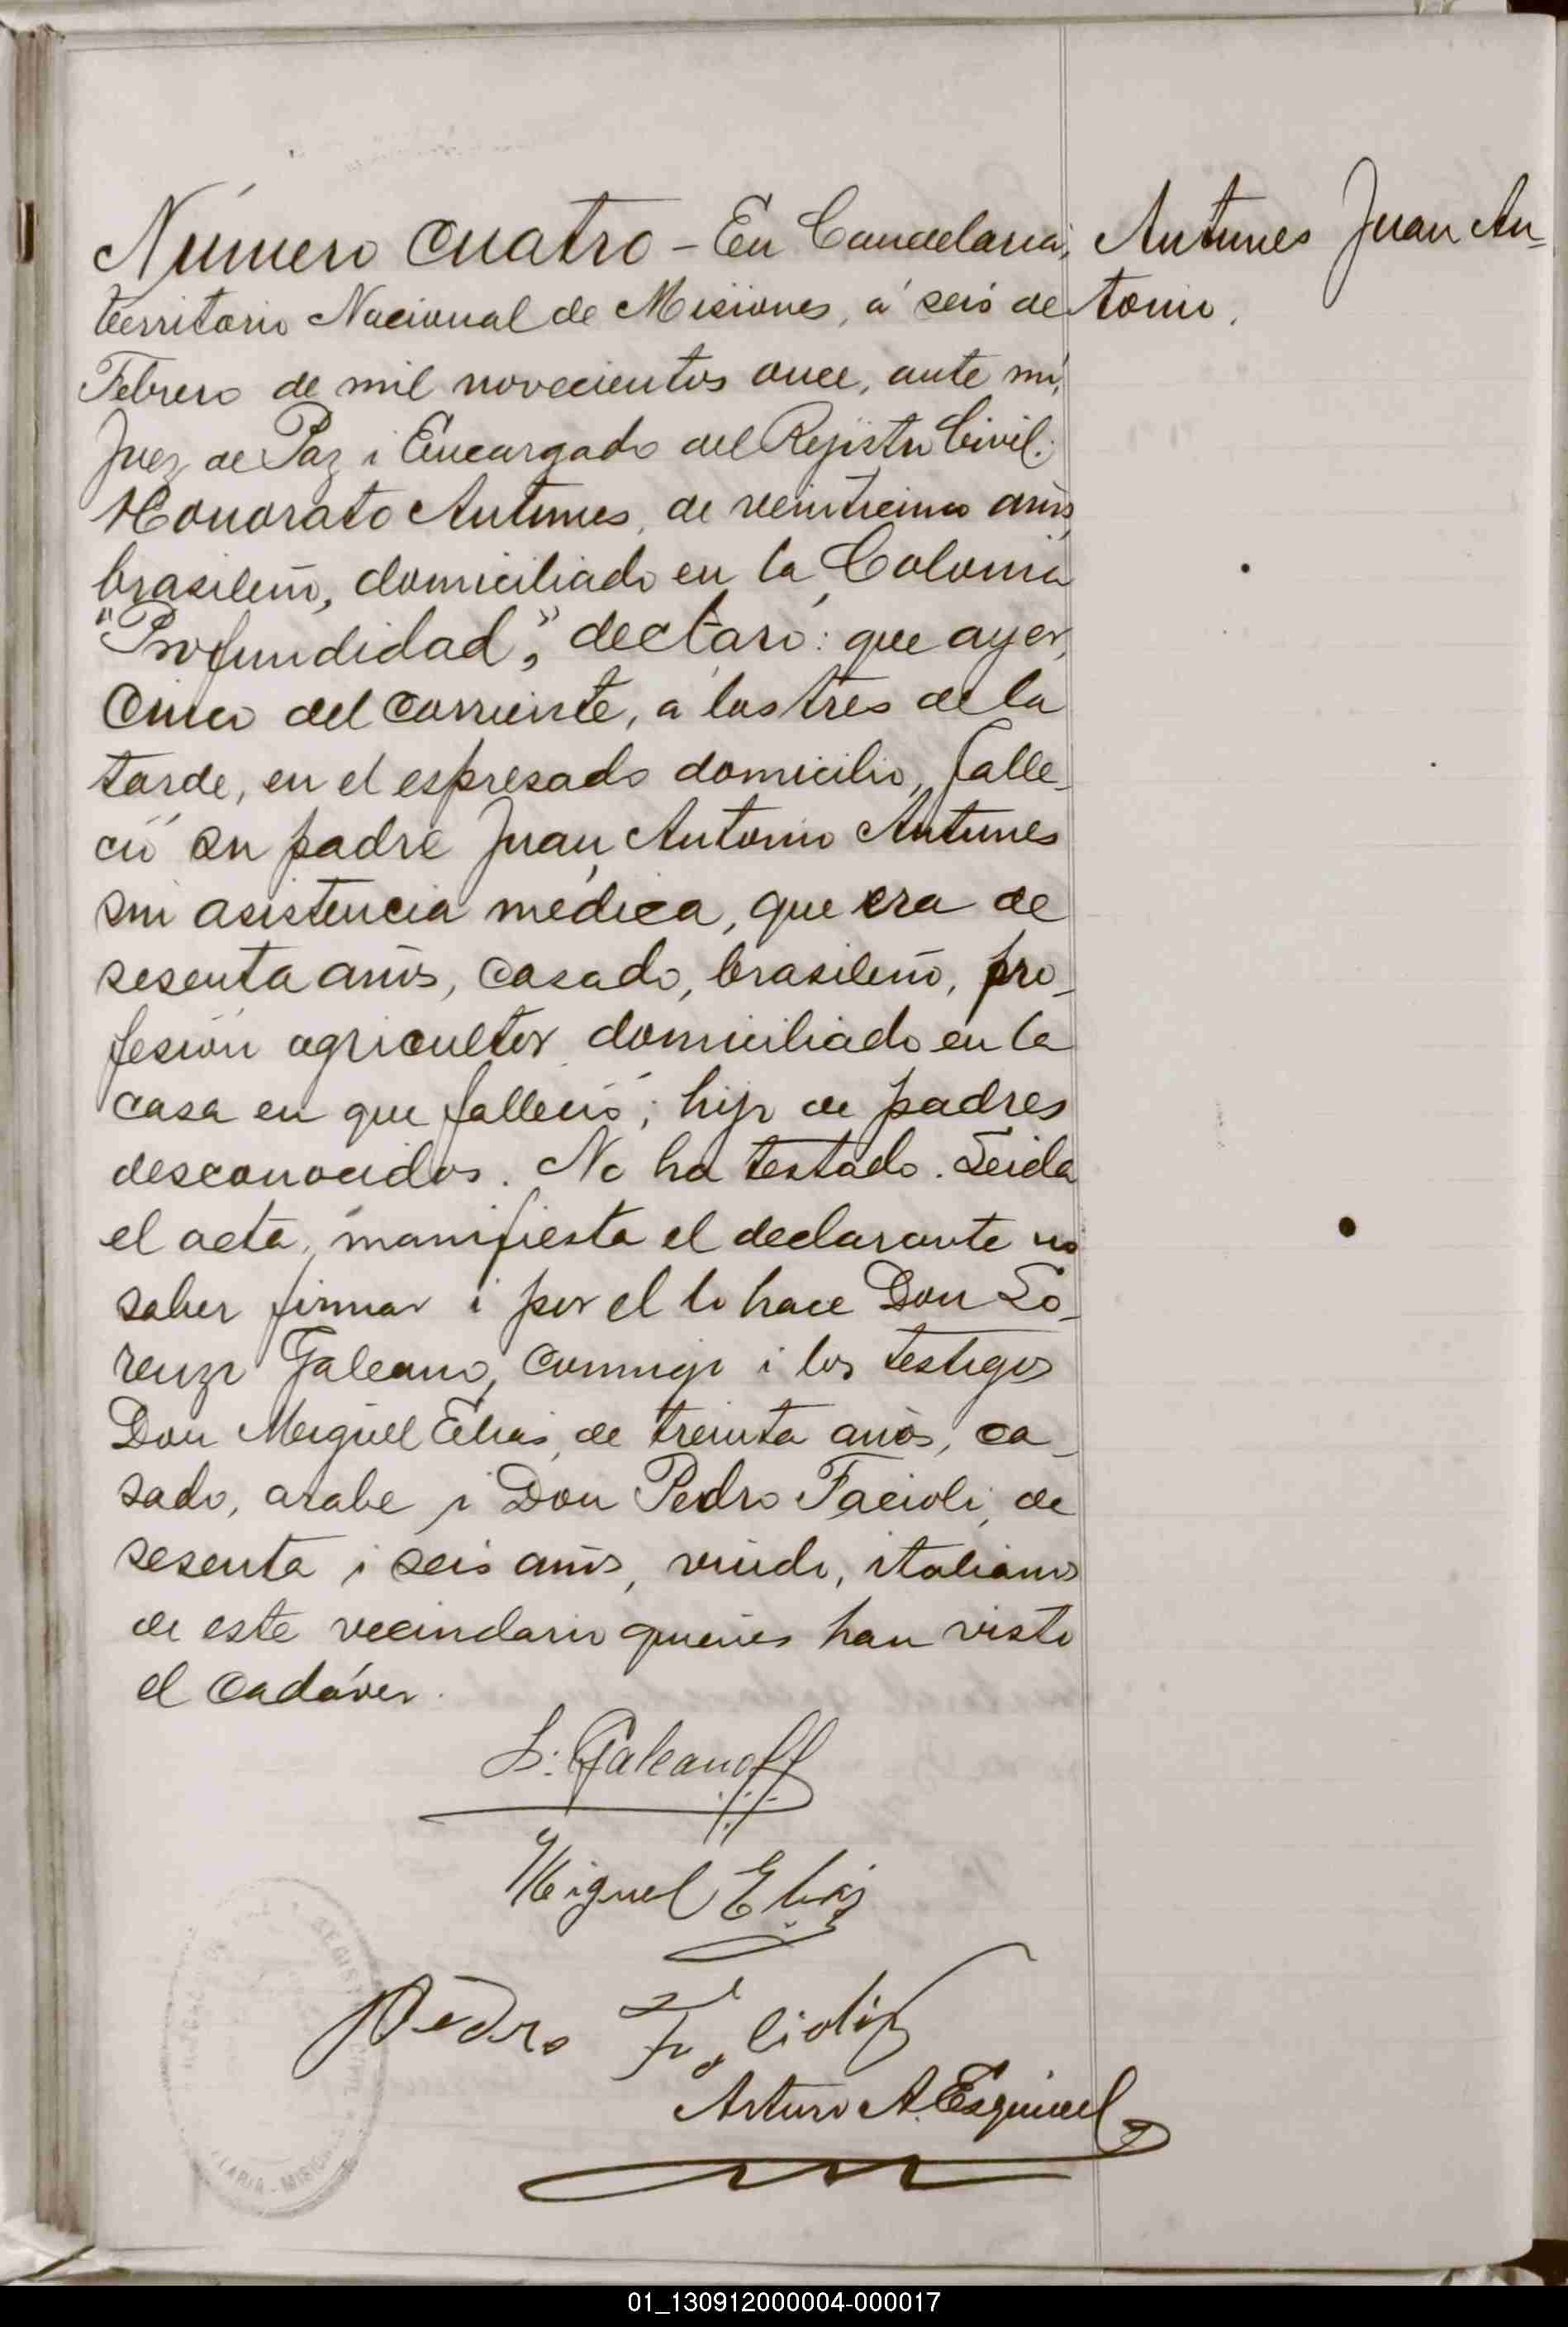 Número cuatro - En Candelaria,
territorio Nacional de Misiones, á seis de
Febrero de mil novecientos once, ante mí,
Juez de Paz i Encargado del Rejistro Civil:
Honorato Antunes, de veinticinco años,
brasileño, domiciliado en la Colonia
"Profundidad", declaró: que ayer,
cinco del corriente, a las tres de la
tarde, en el espresado domicilio, falle-
ció su padre Juan Antonio Antunes
sin asistencia médica, que era de
sesenta años, casado, brasileño, pro-
fesión agricultor domiciliado en la
casa en que falleció; hijo de padres
desconocidos. No ha testado. Leida
el acta, manifiesta el declarante no
saber firmar i por el lo hace Don Lo-
renzo Galeano, conmigo i los testigos
Don Miguel Elias, de treinta años, ca-
sado, arabe i Don Pedro Facioli, de
sesenta i seis años, viudo, italiano
de este vecindario quienes han visto
el cadáver.
Antunes Juan An-
tonio.
L. Galeano
Miguel Elias
Pedro
Arturo A. Esquivel
REGIST CIVIL
LARIA - MISIONES
01_130912000004-000017